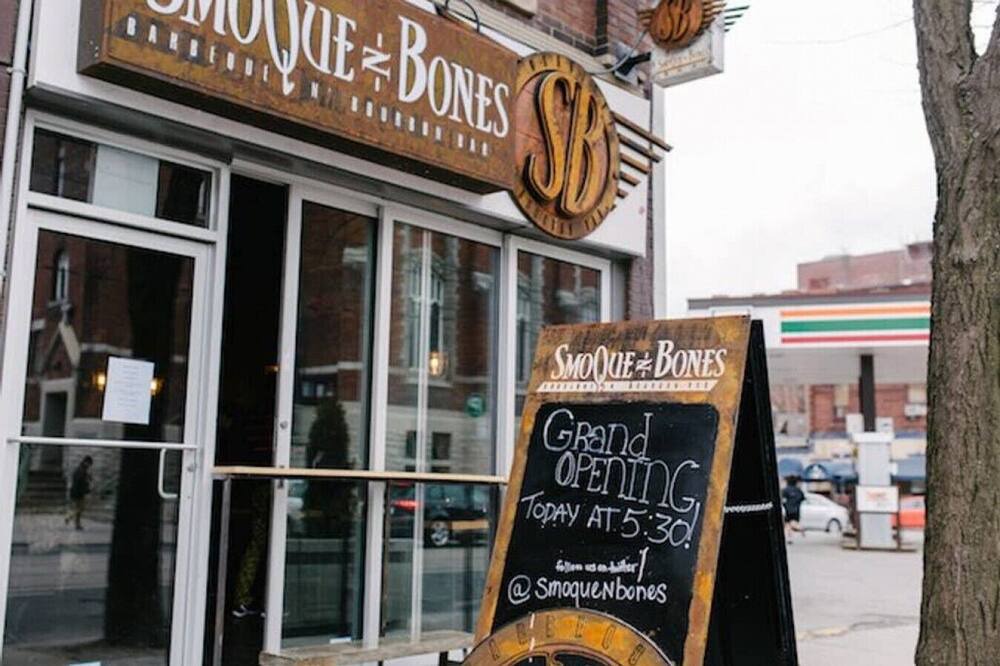 SMOQUE N BONES
BARBEQUE N' BOURBON BAR
SB
SB
SMOQUE N BONES
BARBEQUE N' BOURBON BAR
Grand
OPENING
TODAY AT 5:30!
follow us on twitter!
@SmoqueNbones